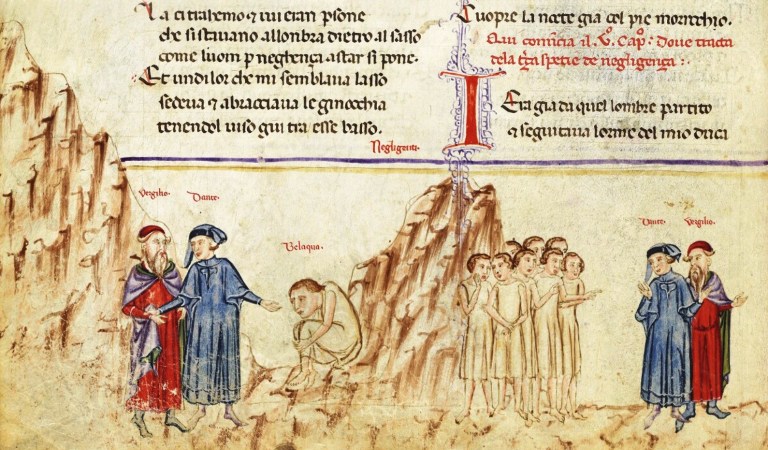 La ci trahemo ⁊ iui eran psone
che si stauano allonbra dietro al sasso
come luom p neghença astar si pone.
Et un di lor che mi semblaua lasso
sedeua ⁊ abracciaua le ginocchia
tenendol uiso giu tra esse basso.
Cuopre la nocte gia col pie morrocchio.
Qui comīcia il .V°. Cap°: Doue tracta
dela spetie de negligença :
Era gia da quel lombre partito
⁊ seguitaua lorme del mio duci
Negligenti.
Vergilio. Dante.
Belaqua.
Dante. Vergilio.